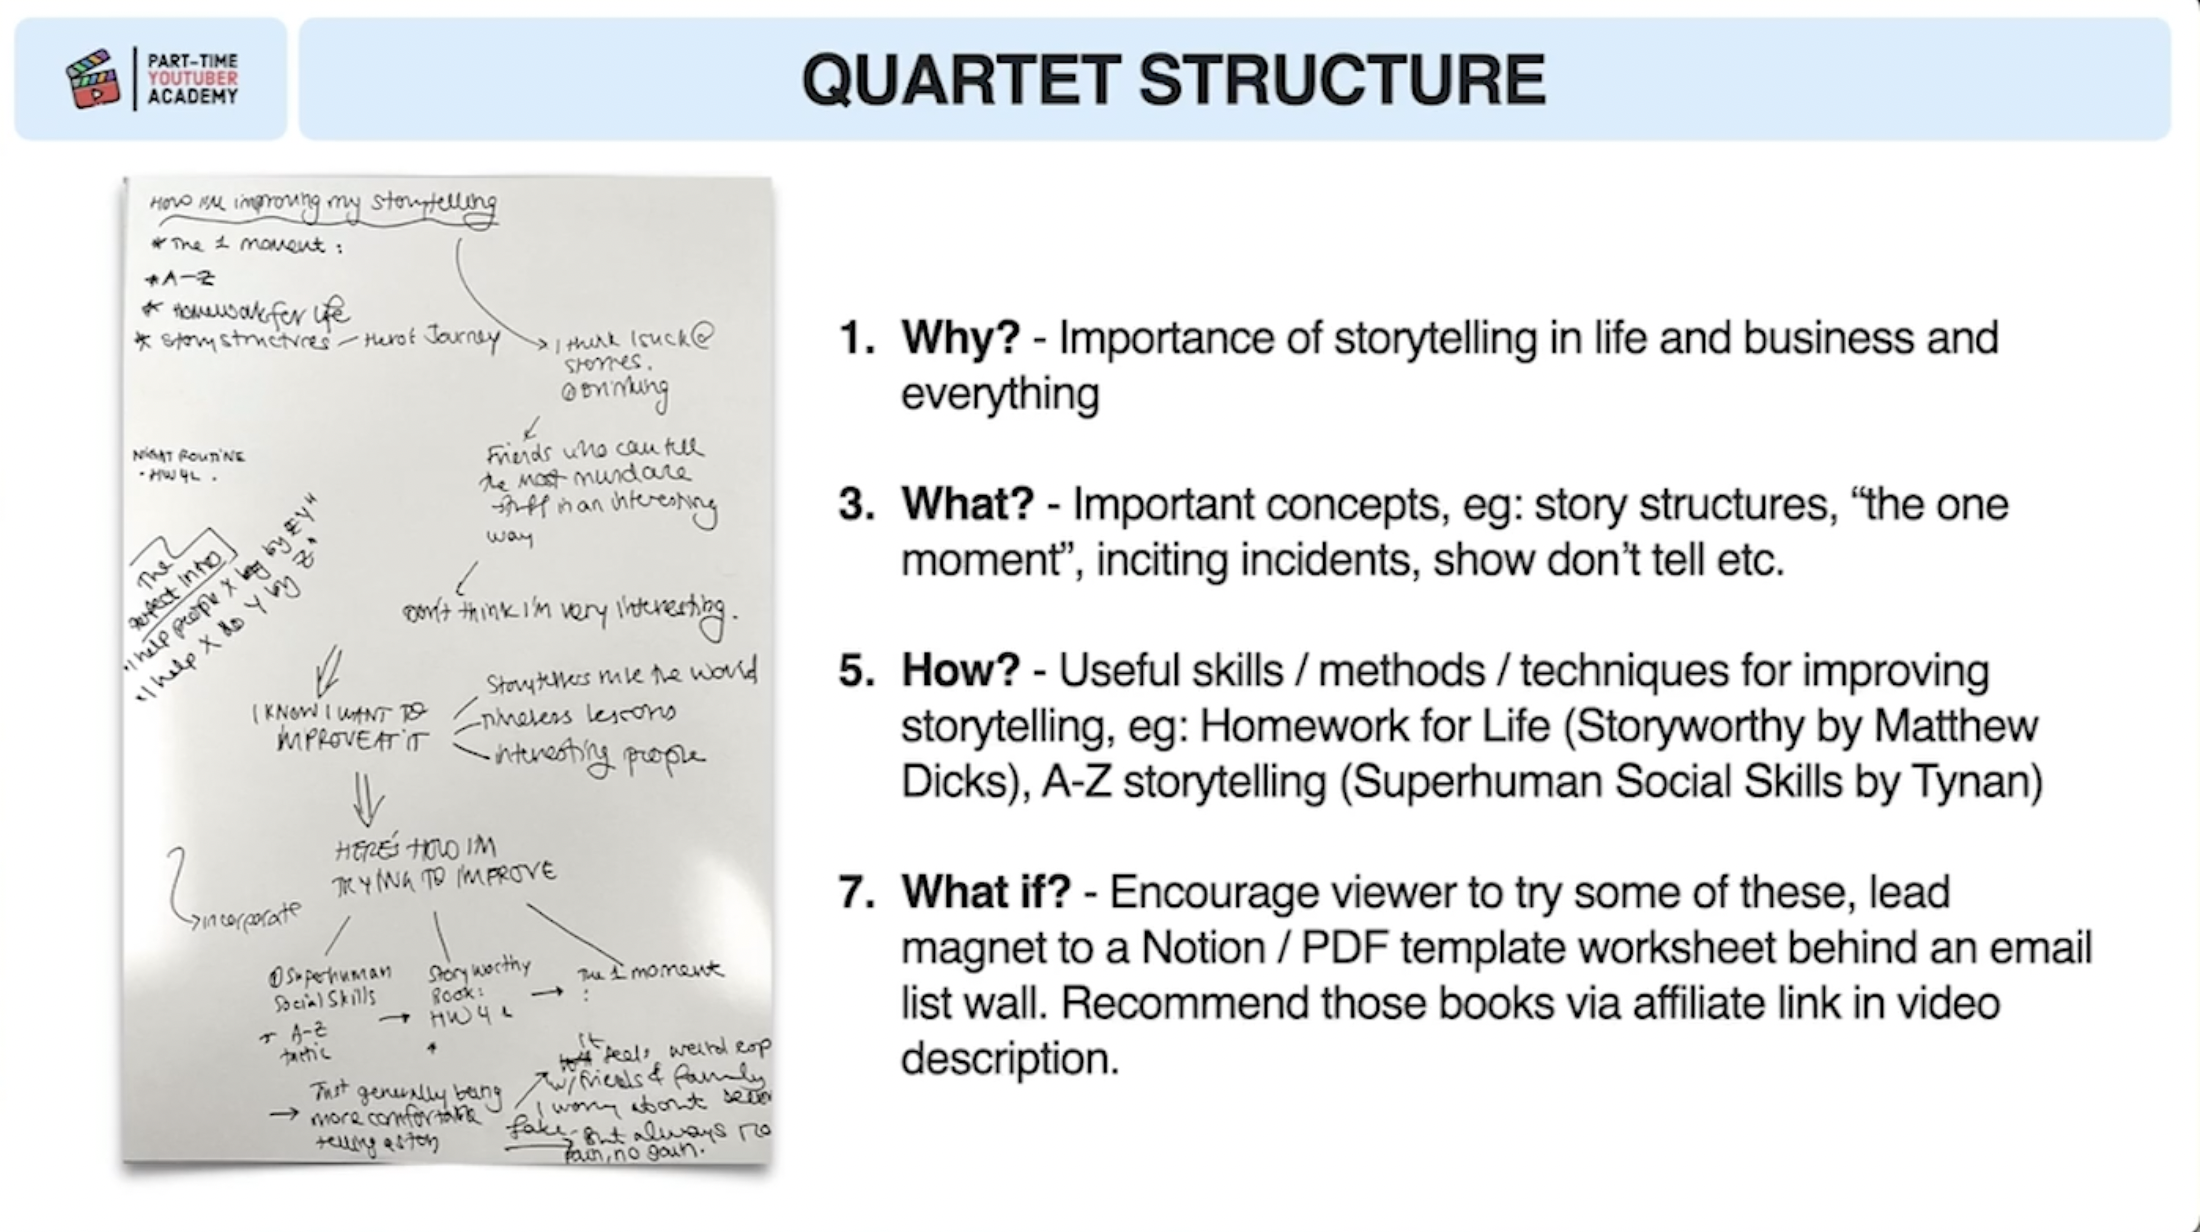 PART-TIME
YOUTUBER
ACADEMY
QUARTET STRUCTURE
How I'm improving my storytelling
* The 1 moment :
* A-Z
* Homework for life
* Story structures - Hero's Journey
I think I suck @
stories.
@ thinking
Friends who can tell
the most mundane
stuff in an interesting
way
Don't think I'm very interesting.
NIGHT ROUTINE
• HW4L .
The
Perfect Intro
"I help people X by Y"
"I help X do Y by Z"
I KNOW I WANT TO
IMPROVE AT IT
Storytellers rule the world
timeless lessons
interesting people
HERE'S HOW I'M
TRYING TO IMPROVE
incorporate
① Superhuman
Social Skills
A-Z
tactic
Storyworthy
Book:
HW4L
The 1 moment
:
Just generally being
more comfortable
telling a story
It
feels weird esp
w/ friends & family
I worry about
fake - But always no
pain, no gain.
1. Why? - Importance of storytelling in life and business and
everything
3. What? - Important concepts, eg: story structures, “the one
moment”, inciting incidents, show don’t tell etc.
5. How? - Useful skills / methods / techniques for improving
storytelling, eg: Homework for Life (Storyworthy by Matthew
Dicks), A-Z storytelling (Superhuman Social Skills by Tynan)
7. What if? - Encourage viewer to try some of these, lead
magnet to a Notion / PDF template worksheet behind an email
list wall. Recommend those books via affiliate link in video
description.